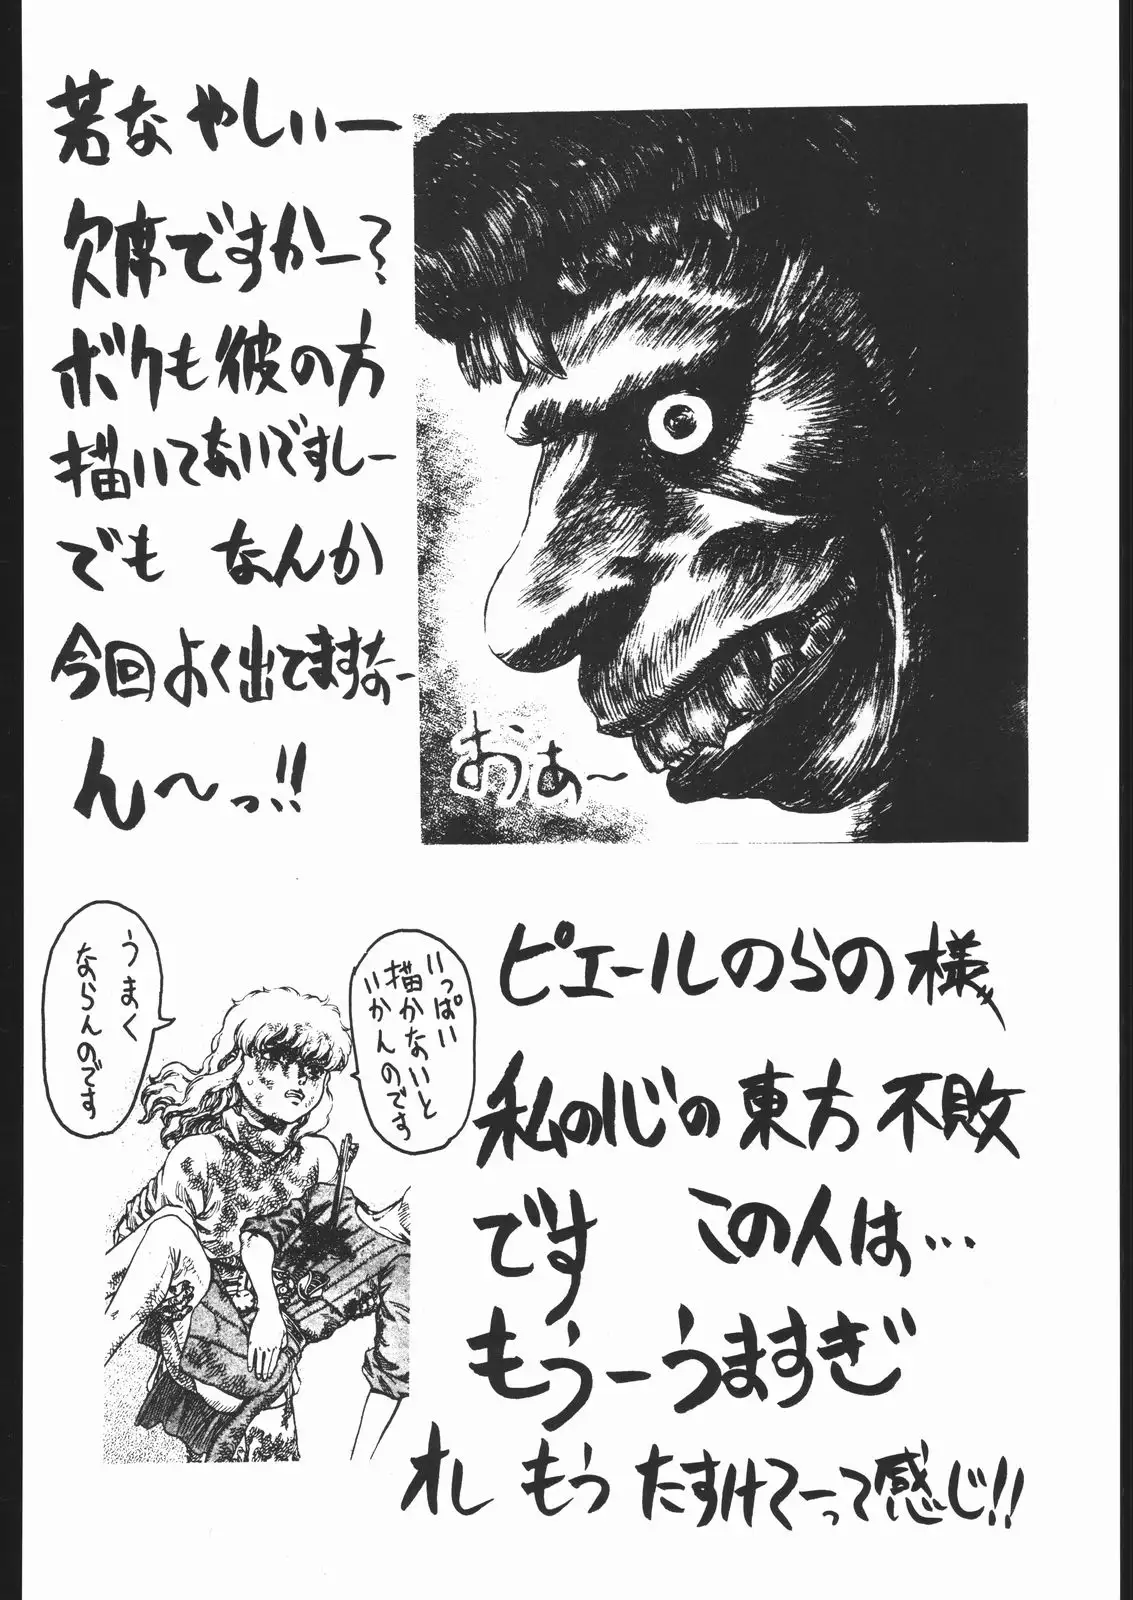 若な やしぃー
欠席ですかー?
ボクも彼の方
描いてないですしー
でも なんか
今回よく出てますなー
ん～っ!!
おぁ～
いっぱい
描かないと
いかんのです
うまく
ならんのです
ピエールのらの様
私の心の東方不敗
です この人は…
もうーうますぎ
オレ もう たすけてーって感じ!!